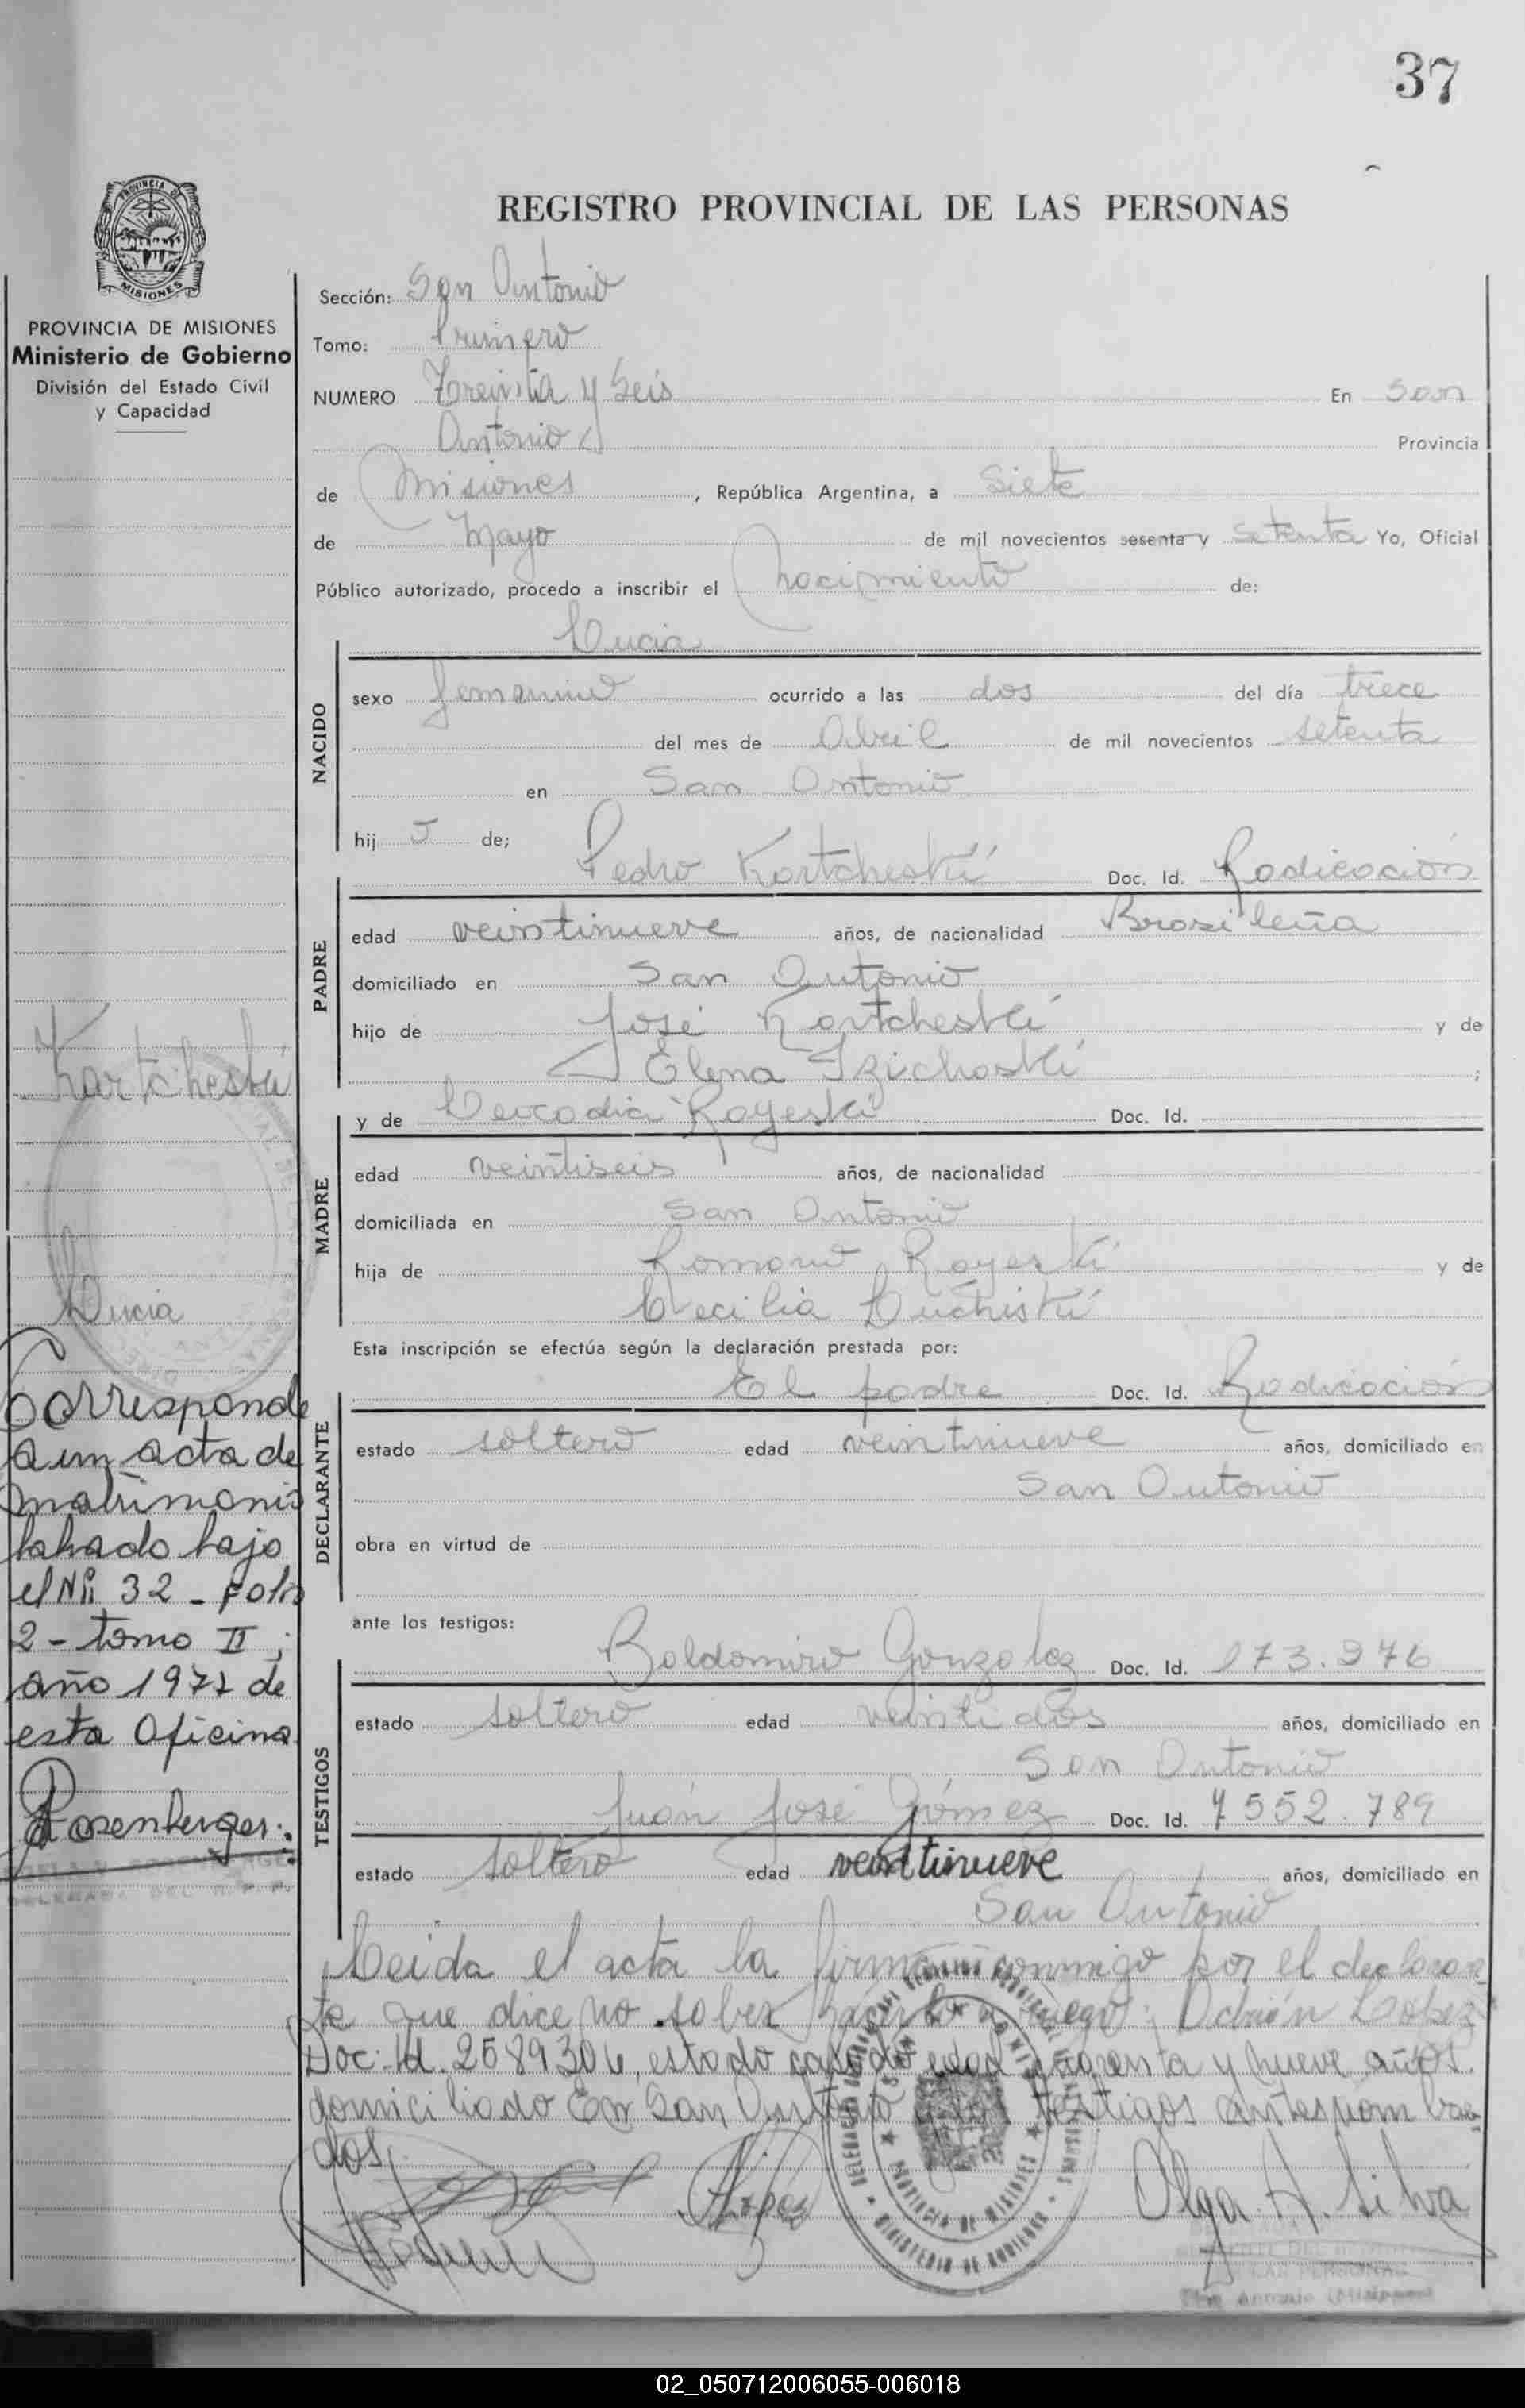 37
REGISTRO PROVINCIAL DE LAS PERSONAS
PROVINCIA DE MISIONES
Ministerio de Gobierno
División del Estado Civil
y Capacidad
Sección: San Antonio
Tomo: Primero
NUMERO Treinta y Seis En San
Antonio Provincia
de Misiones, República Argentina, a Siete
de Mayo de mil novecientos sesenta y setenta Yo, Oficial
Público autorizado, procedo a inscribir el nacimiento de:
Lucia
NACIDO
sexo femenino ocurrido a las dos del día trece
del mes de Abril de mil novecientos setenta
en San Antonio
hij de;
Pedro Kartcheski Doc. Id. Radicación
PADRE
edad veintinueve años, de nacionalidad Brasileña
domiciliado en San Antonio
hijo de José Kartcheski y de
Elena Izichoski ;
y de Leocadia Royeski Doc. Id.
MADRE
edad veintiseis años, de nacionalidad
domiciliada en San Antonio
hija de Romano Royeski y de
Cecilia Luchiski
Esta inscripción se efectúa según la declaración prestada por:
El padre Doc. Id. Radicación
DECLARANTE
estado soltero edad veintinueve años, domiciliado en
San Antonio
obra en virtud de
ante los testigos:
Baldomiro Gonzalez Doc. Id. 173.976
TESTIGOS
estado soltero edad veintidos años, domiciliado en
San Antonio
Juan José Gómez Doc. Id. 7552.789
estado soltero edad veintinueve años, domiciliado en
San Antonio
Leida el acta la firman conmigo por el declaran
te que dice no saber hacerlo ruego: Adrián López
Doc. Id. 2589306, estado casado edad y nueve años
domiciliado En San Antonio y los testigos antes nombra
dos.
López
Olga A. Silva
Kartcheski
Lucia
Corresponde
a un acta de
matrimonio
labrado bajo
el Nº 32 - Folio
2 - tomo II ;
año 1971 de
esta Oficina
Rosenberger
02_050712006055-006018